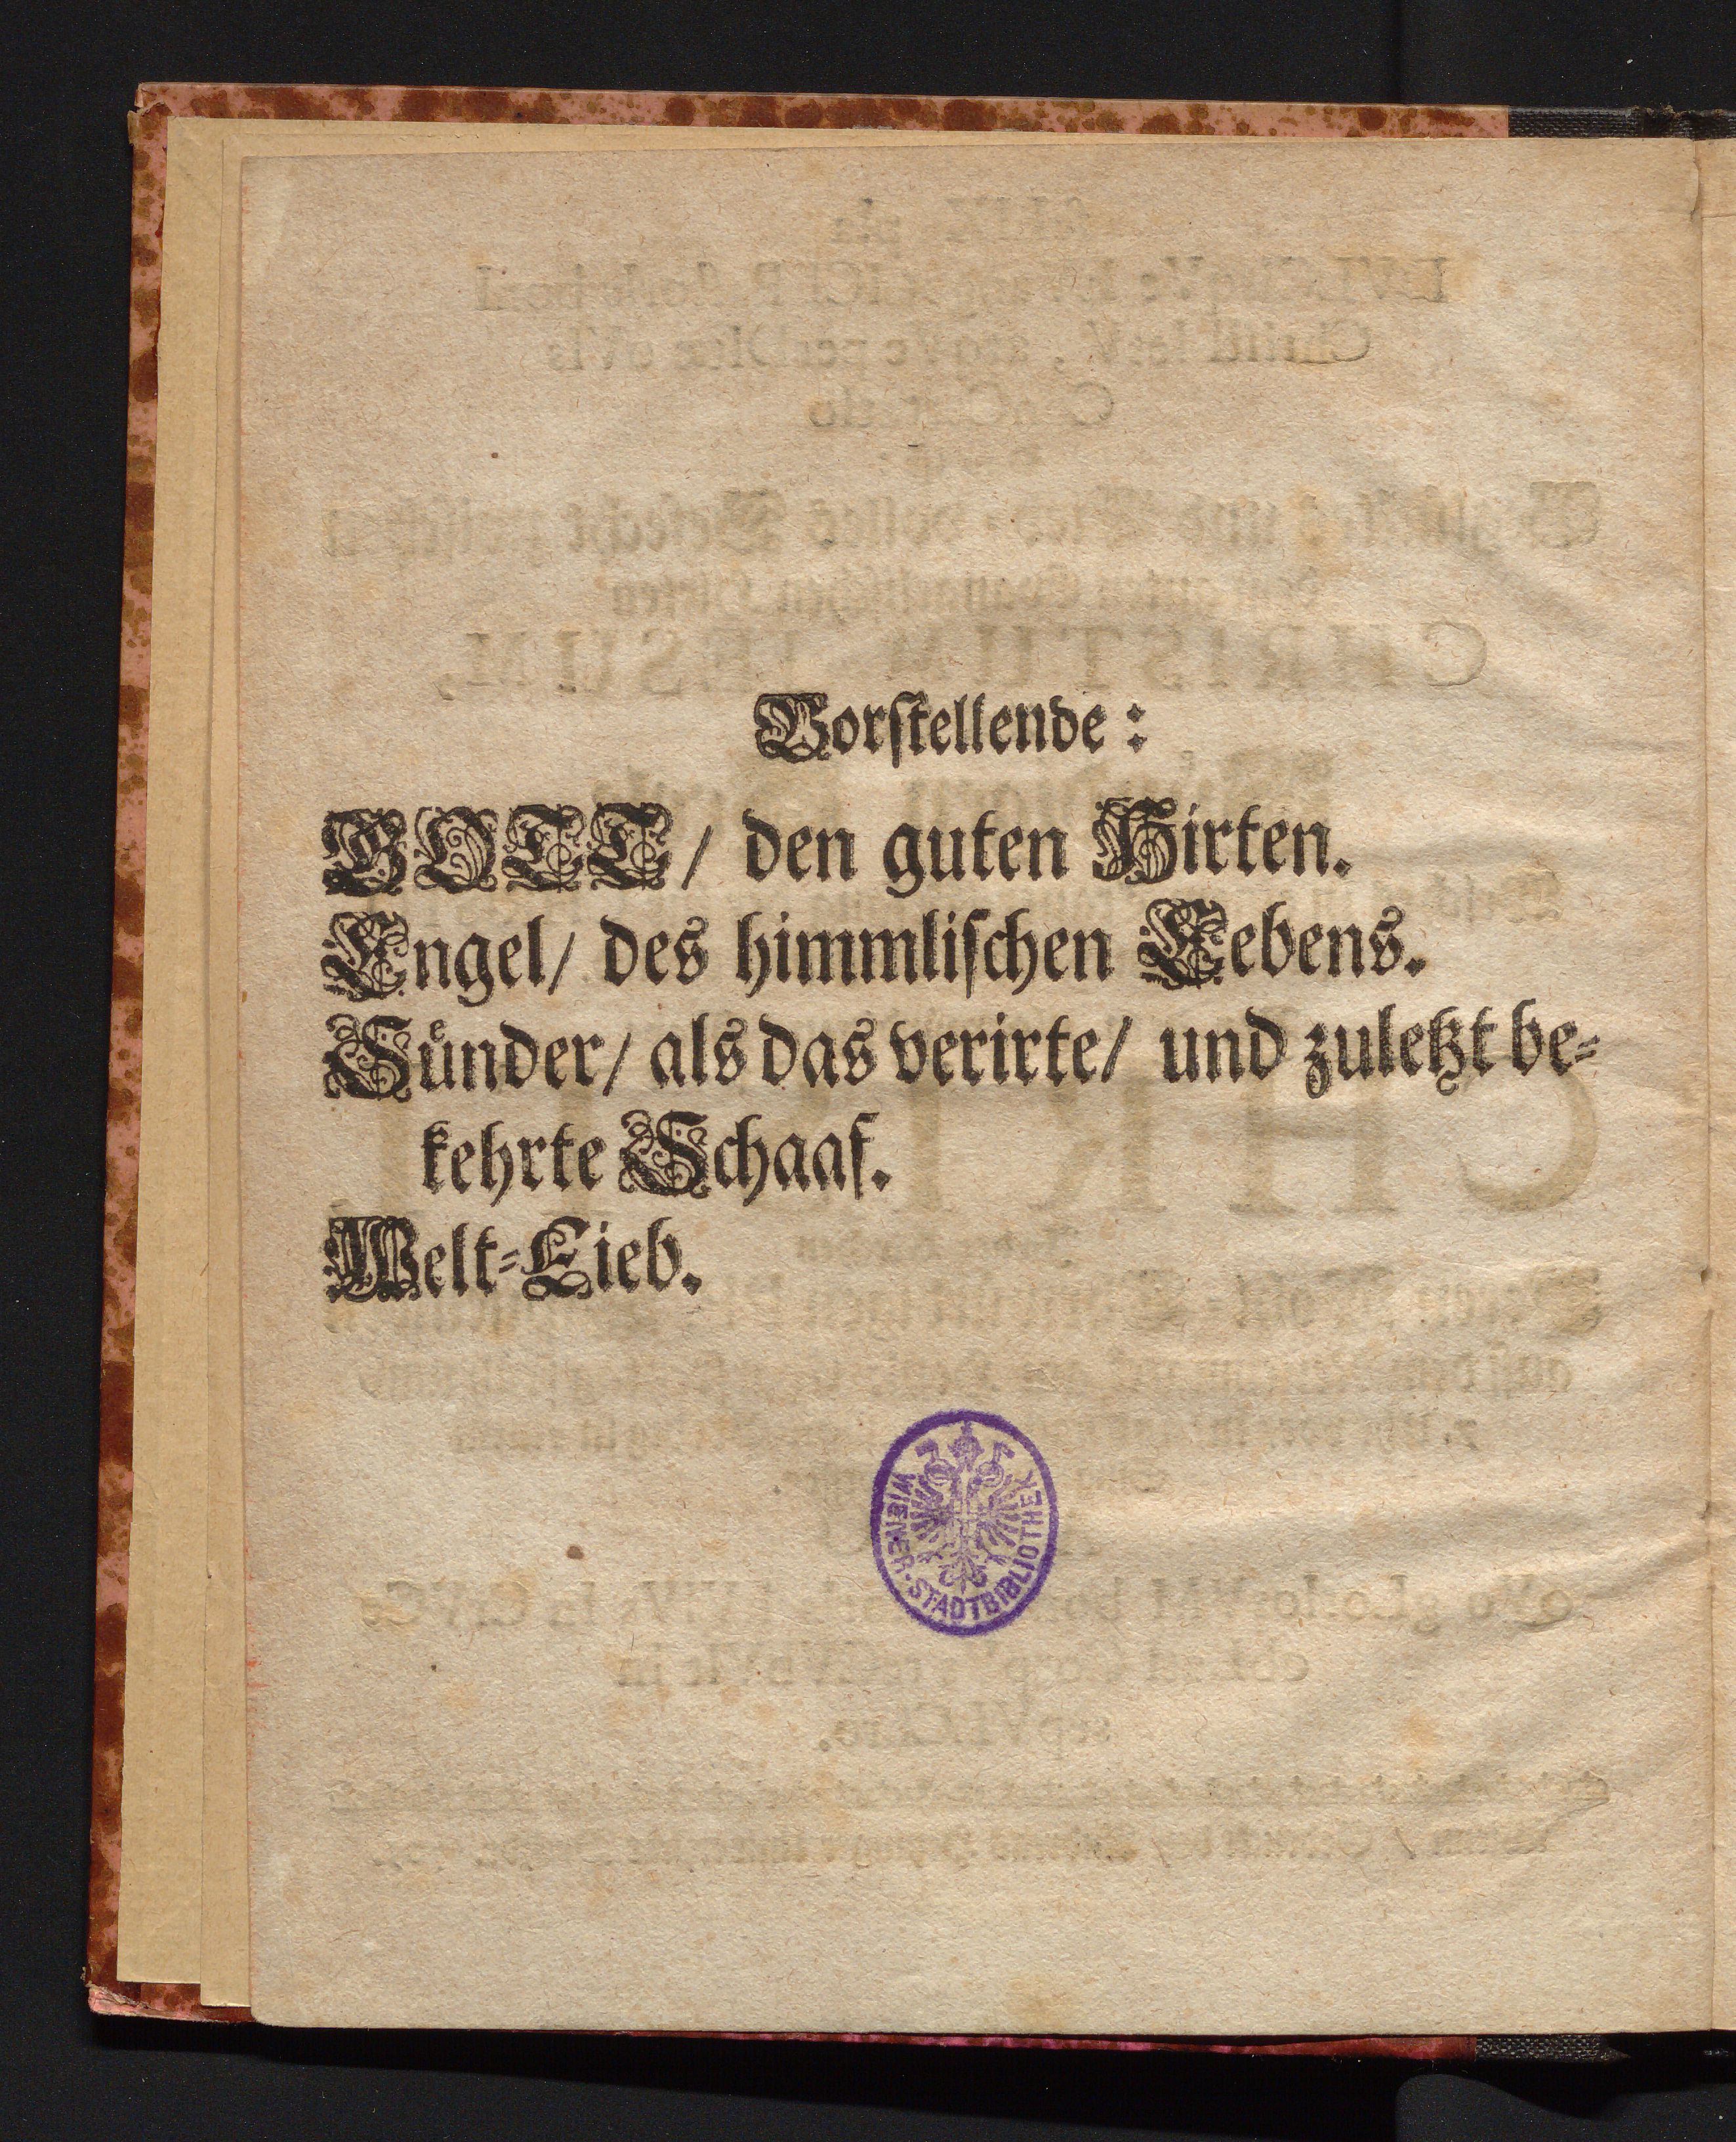 Vorſtellende:
GOTT/ den guten Hirten.
Engel/ des himmliſchen Lebens.
Suͤnder/ als das verirte/ und zuletzt be⸗
kehrte Schaaf.
Welt⸗Lieb.
WIENER·STADTBIBLIOTHEK